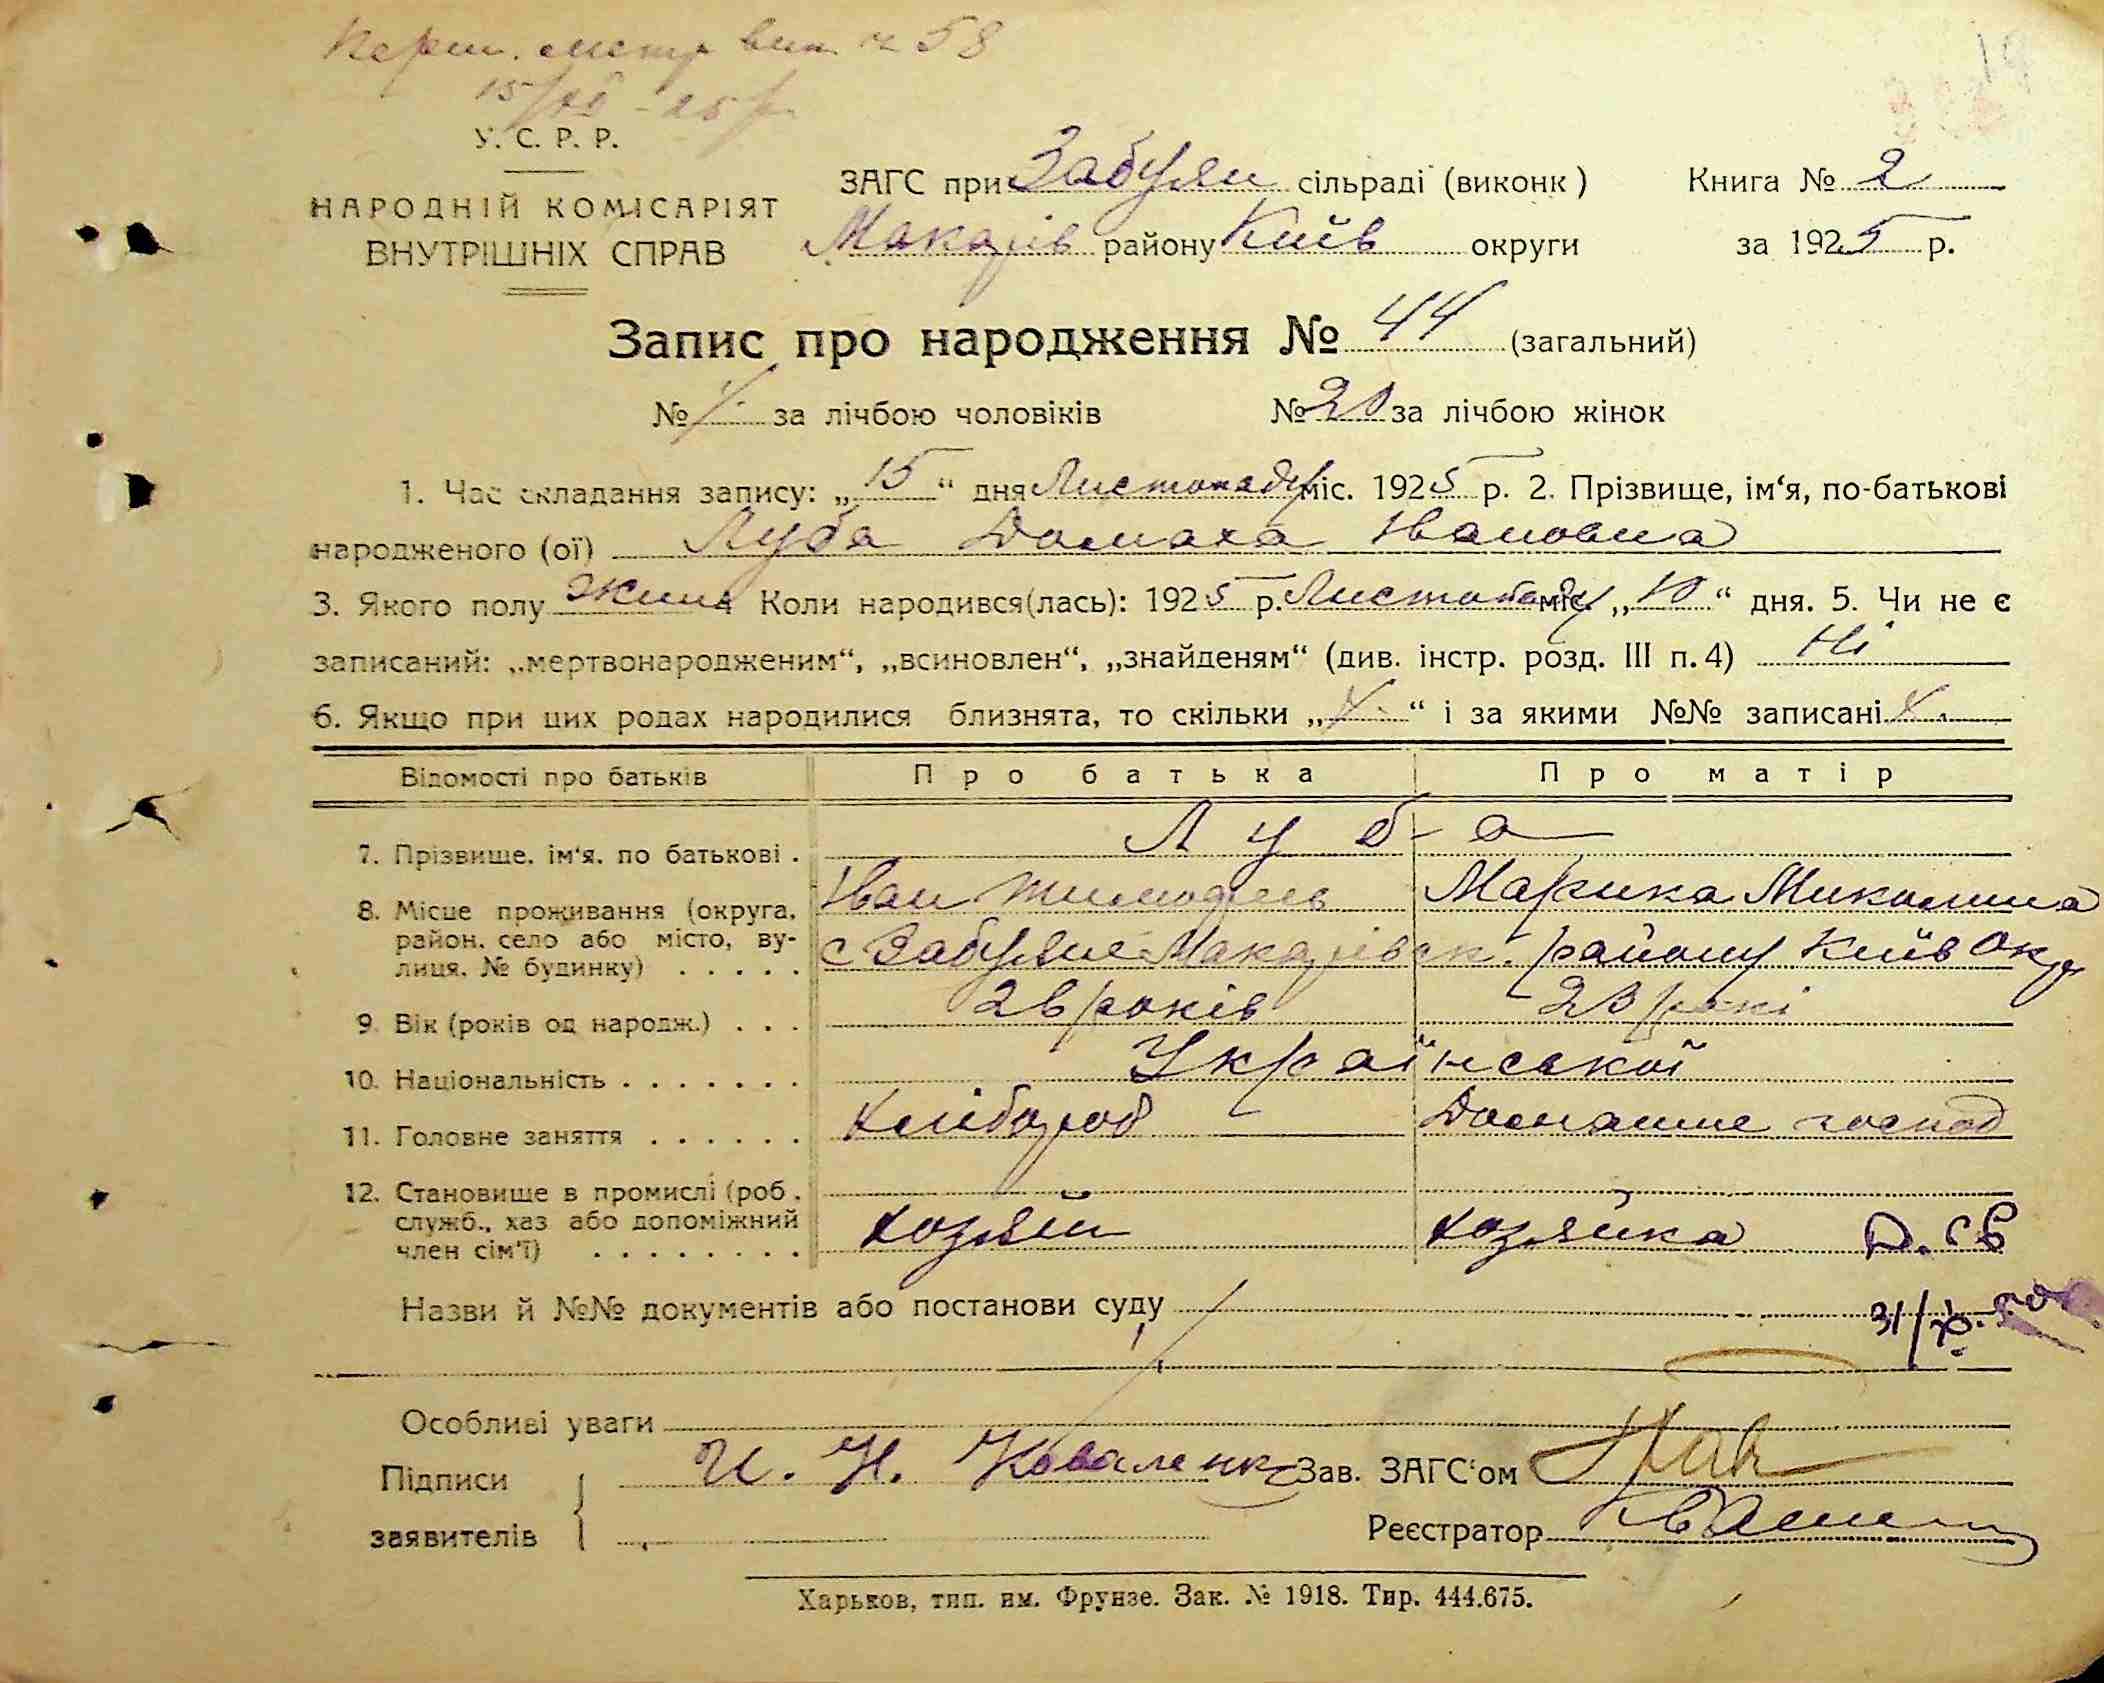 вип. 58
У. С. Р. Р.
НАРОДНІЙ КОМІСАРІЯТ
ВНУТРІШНІХ СПРАВ
ЗАГС при Забуян сільраді (виконк)
Макарів району Київ округи
Книга № 2
за 1925 р.
Запис про народження № 44 (загальний)
№ за лічбою чоловіків № 20 за лічбою жінок
1. Час складання запису: „15“ дня Листопаду міс. 1925 р. 2. Прізвище, ім‘я, по-батькові
народженого (ої) Луба Домаха Ивановна
3. Якого полу жін 4 Коли народився(лась): 1925 р. Листопаду міс. „10“ дня. 5. Чи не є
записаний: „мертвонародженим“, „всиновлен“, „знайденям“ (див. інстр. розд. III п. 4) Ні
6. Якщо при цих родах народилися близнята, то скільки „х“ і за якими №№ записані х.
Відомості про батьків Про батька Про матір
7. Прізвище, ім‘я, по батькові . Луба
Иван Тимофієв Марика Миколина
8. Місце проживання (округа,
район, село або місто, ву-
лиця, № будинку) . . . . .
с Забуяне Макарівск. району Київ Окр
9. Вік (років од народж.) . . . 26 років 23 рокі
10. Національність . . . . . . . Української
11. Головне заняття . . . . . . Хлібороб Домашне господ
12. Становище в промислі (роб.
служб., хаз або допоміжний
член сім‘ї) . . . . . . . .
хозяїн хозяйка Д. св
Назви й №№ документів або постанови суду
31/
Особливі уваги
Підписи
заявителів
И. Н. Коваленко
Зав. ЗАГС‘ом
Реєстратор
Харьков, тип. им. Фрунзе. Зак. № 1918. Тир. 444.675.